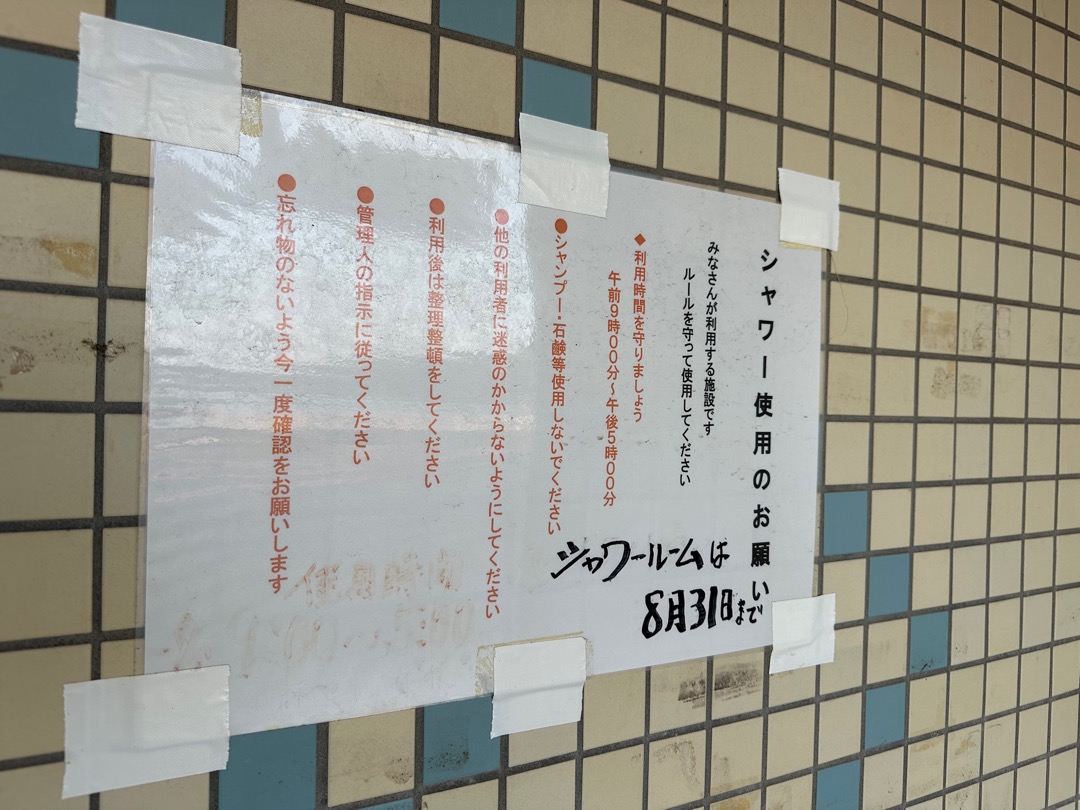 シャワー使用のお願い
みなさんが利用する施設です
ルールを守って使用してください
◆利用時間を守りましょう
午前9時00分～午後5時00分
●シャンプー・石鹸等使用しないでください
●他の利用者に迷惑のかからないようにしてください
●利用後は整理整頓をしてください
●管理人の指示に従ってください
●忘れ物のないよう今一度確認をお願いします
シャワールームは
8月31日まで